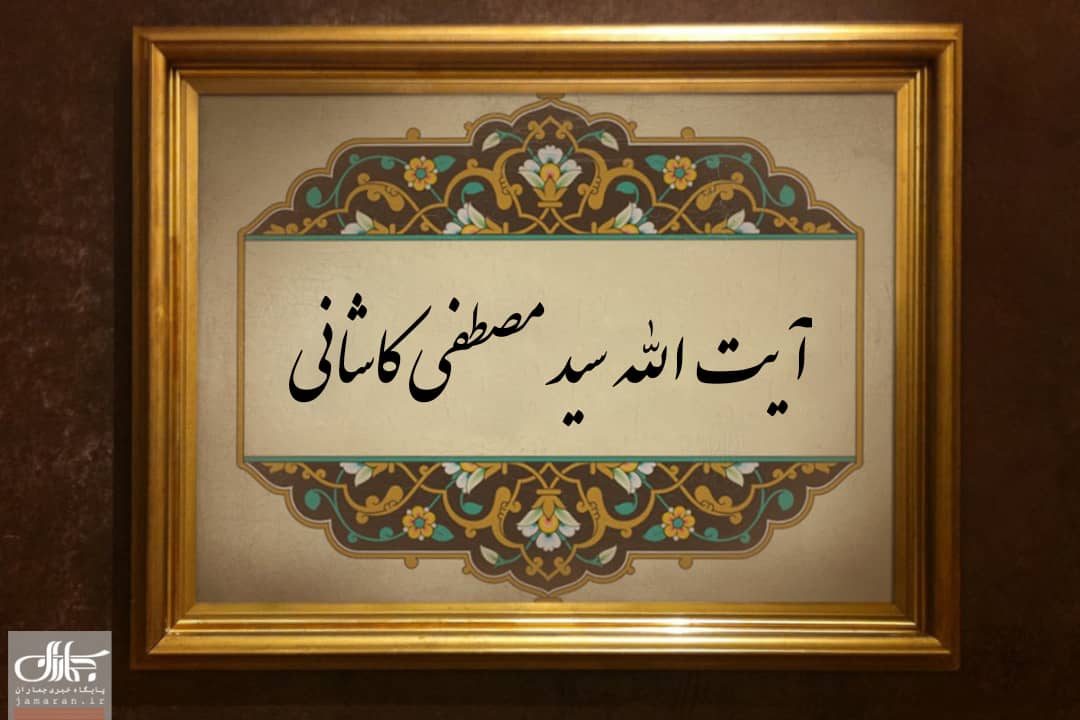 آیت الله سید مصطفی کاشانی
جماران
پایگاه خبری جماران
jamaran.ir